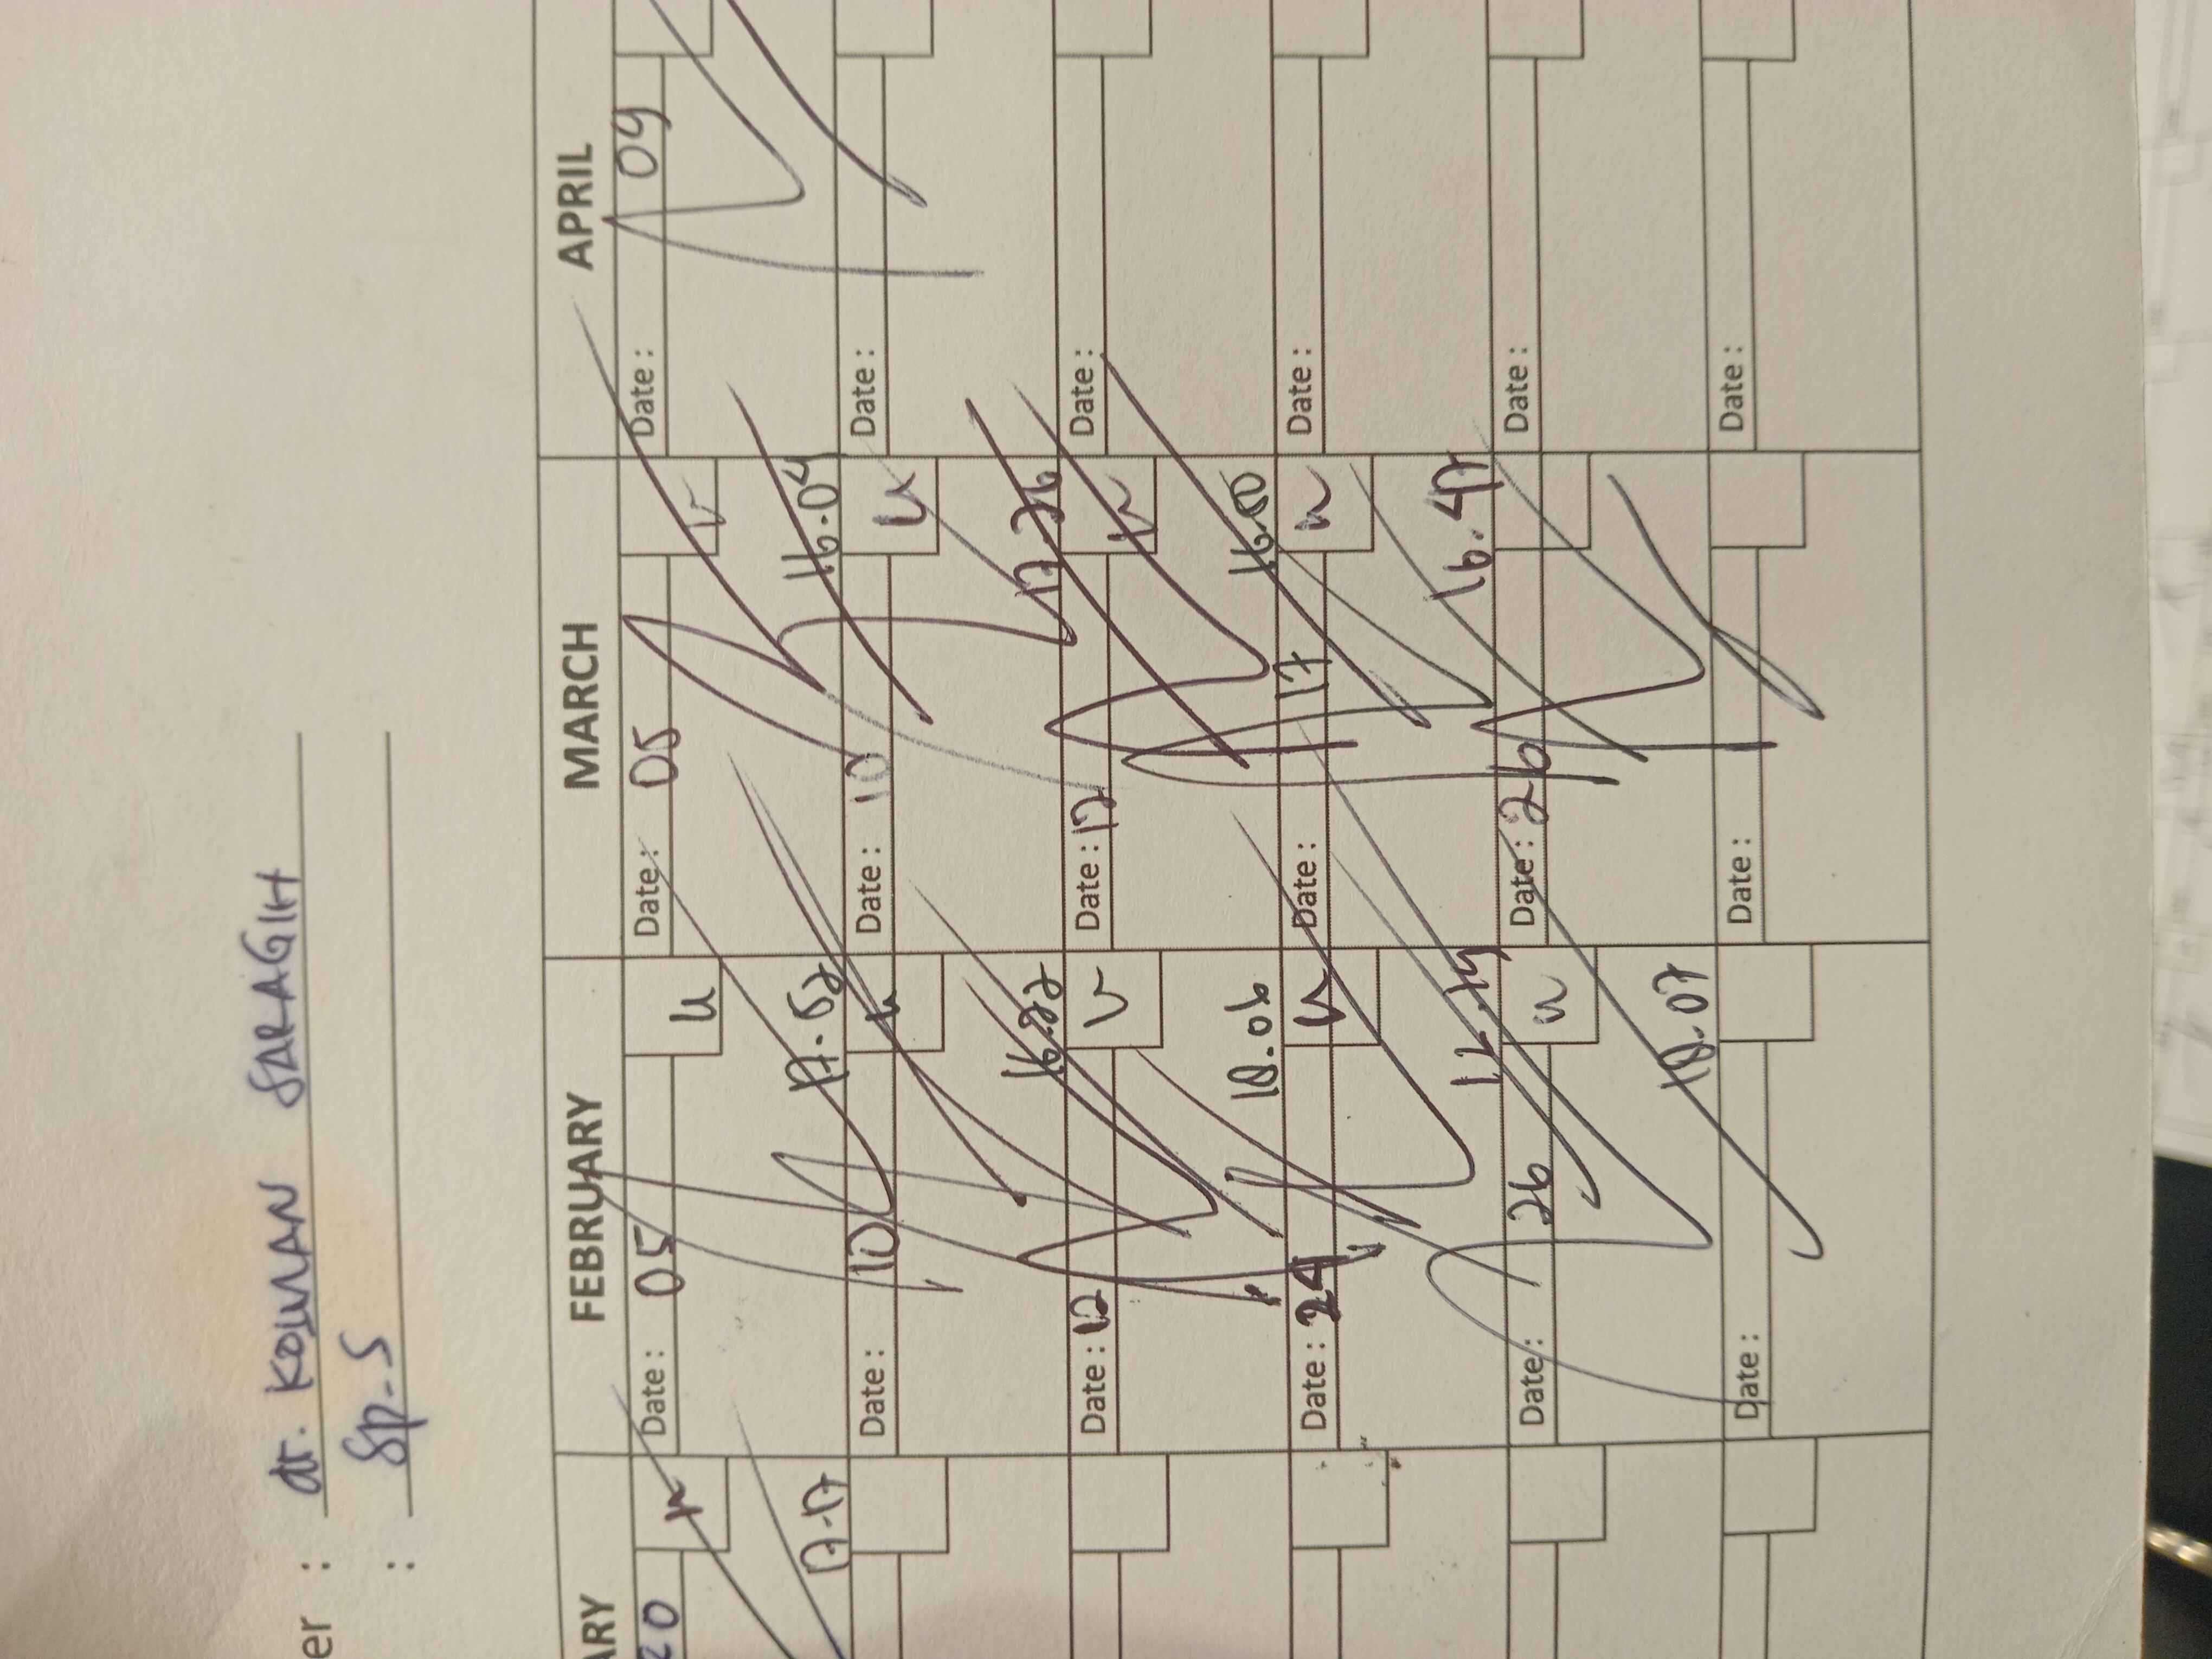 er : dr. KOLMAN SARAGIH
: Sp-S
ARY FEBRUARY MARCH APRIL
20 Date : 05 Date : 05 Date : 09
17-17 17.52 16.04
Date : 10 Date : 10 Date :
16.22 17.26
Date : 12 Date : 12 Date :
18.06 16.00
Date : 24 Date : 17 Date :
17.14 16.47
Date : 26 Date : 26 Date :
18.07
Date : Date : Date :